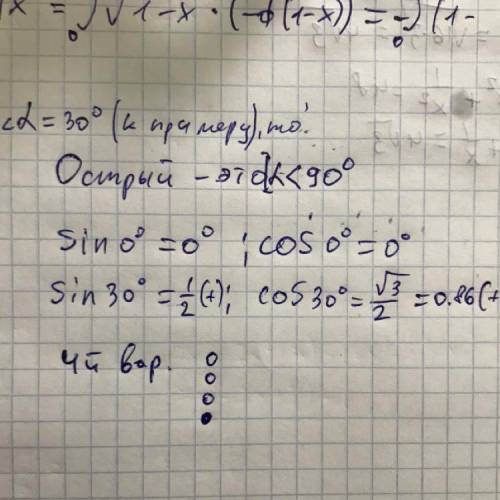 x = ₀∫√1-x · (-d(1-x)) = -₀∫(1-
α = 30° (к примеру), то:
Острый - это α < 90°
Sin 0° = 0° ; cos 0° = 0°
Sin 30° = 1/2 (+); cos 30° = √3/2 = 0.86 (+
4й вар.